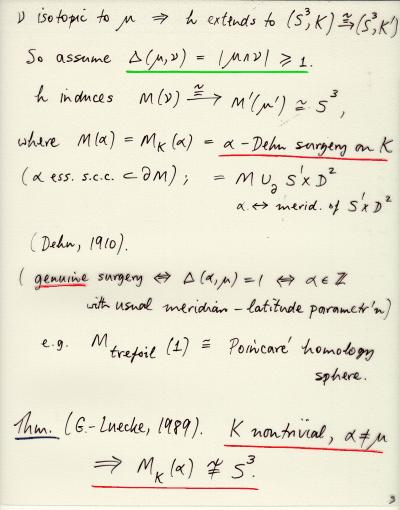 ν isotopic to μ ⇒ h extends to (S³,K) ≅→ (S³,K')
So assume Δ(μ,ν) = |μ∩ν| ⩾ 1.
h induces M(ν) ≅→ M'(μ') ≅ S³,
where M(α) = M_K(α) = α-Dehn surgery on K
(α ess. s.c.c. ⊂ ∂M) ; = M ∪_∂ S¹×D²
α ↔ merid. of S¹×D²
(Dehn, 1910).
( genuine surgery ⇔ Δ(α,μ)=1 ⇔ α∈ℤ
with usual meridian-latitude parametr'n)
e.g. M_trefoil (1) ≅ Poincaré homology
sphere.
Thm. (G.-Luecke, 1989). K nontrivial, α≠μ
⇒ M_K(α) ≇ S³.